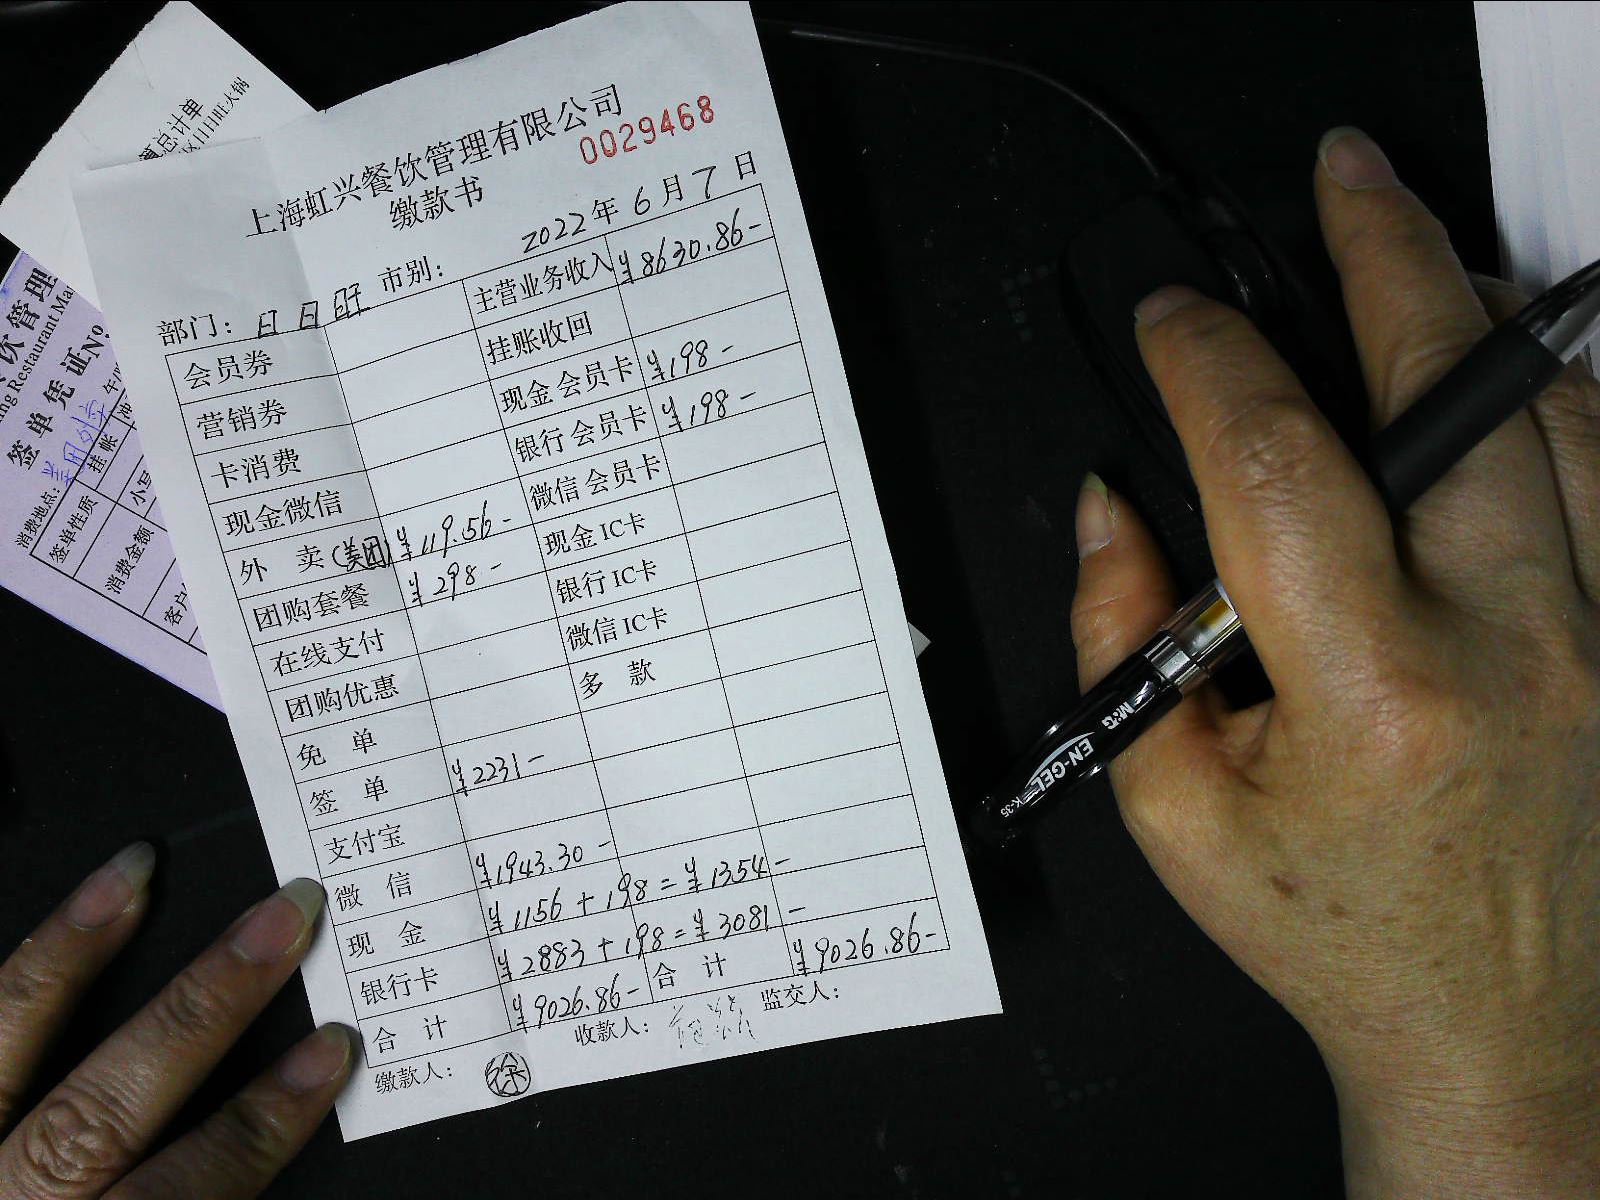 上海虹兴餐饮管理有限公司
0029468
缴款书
2022年 6月 7日
部门: 日日旺 市别:
会员券 主营业务收入 ¥8630.86-
营销券 挂账收回
卡消费 现金 会员卡 ¥198-
现金微信 银行 会员卡 ¥198-
外 卖(美团) ¥119.56- 微信 会员卡
团购套餐 ¥298- 现金IC卡
在线支付 银行IC卡
团购优惠 微信IC卡
免 单 多 款
签 单 ¥2231-
支付宝
微 信 ¥1943.30-
现 金 ¥1156+198=¥1354-
银行卡 ¥2883+198=¥3081-
合 计 ¥9026.86- 合 计 ¥9026.86-
缴款人: 徐 收款人: 监交人:
总计单
日日旺火锅
饮管理
Restaurant Ma
签单凭证No.
消费地点: 美团外卖
签单性质 挂账
消费金额 小写
客户
M&G EN-GEL K-35